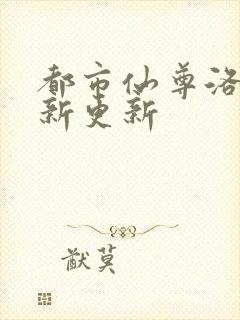 都市仙尊洛
新更新
猷莫